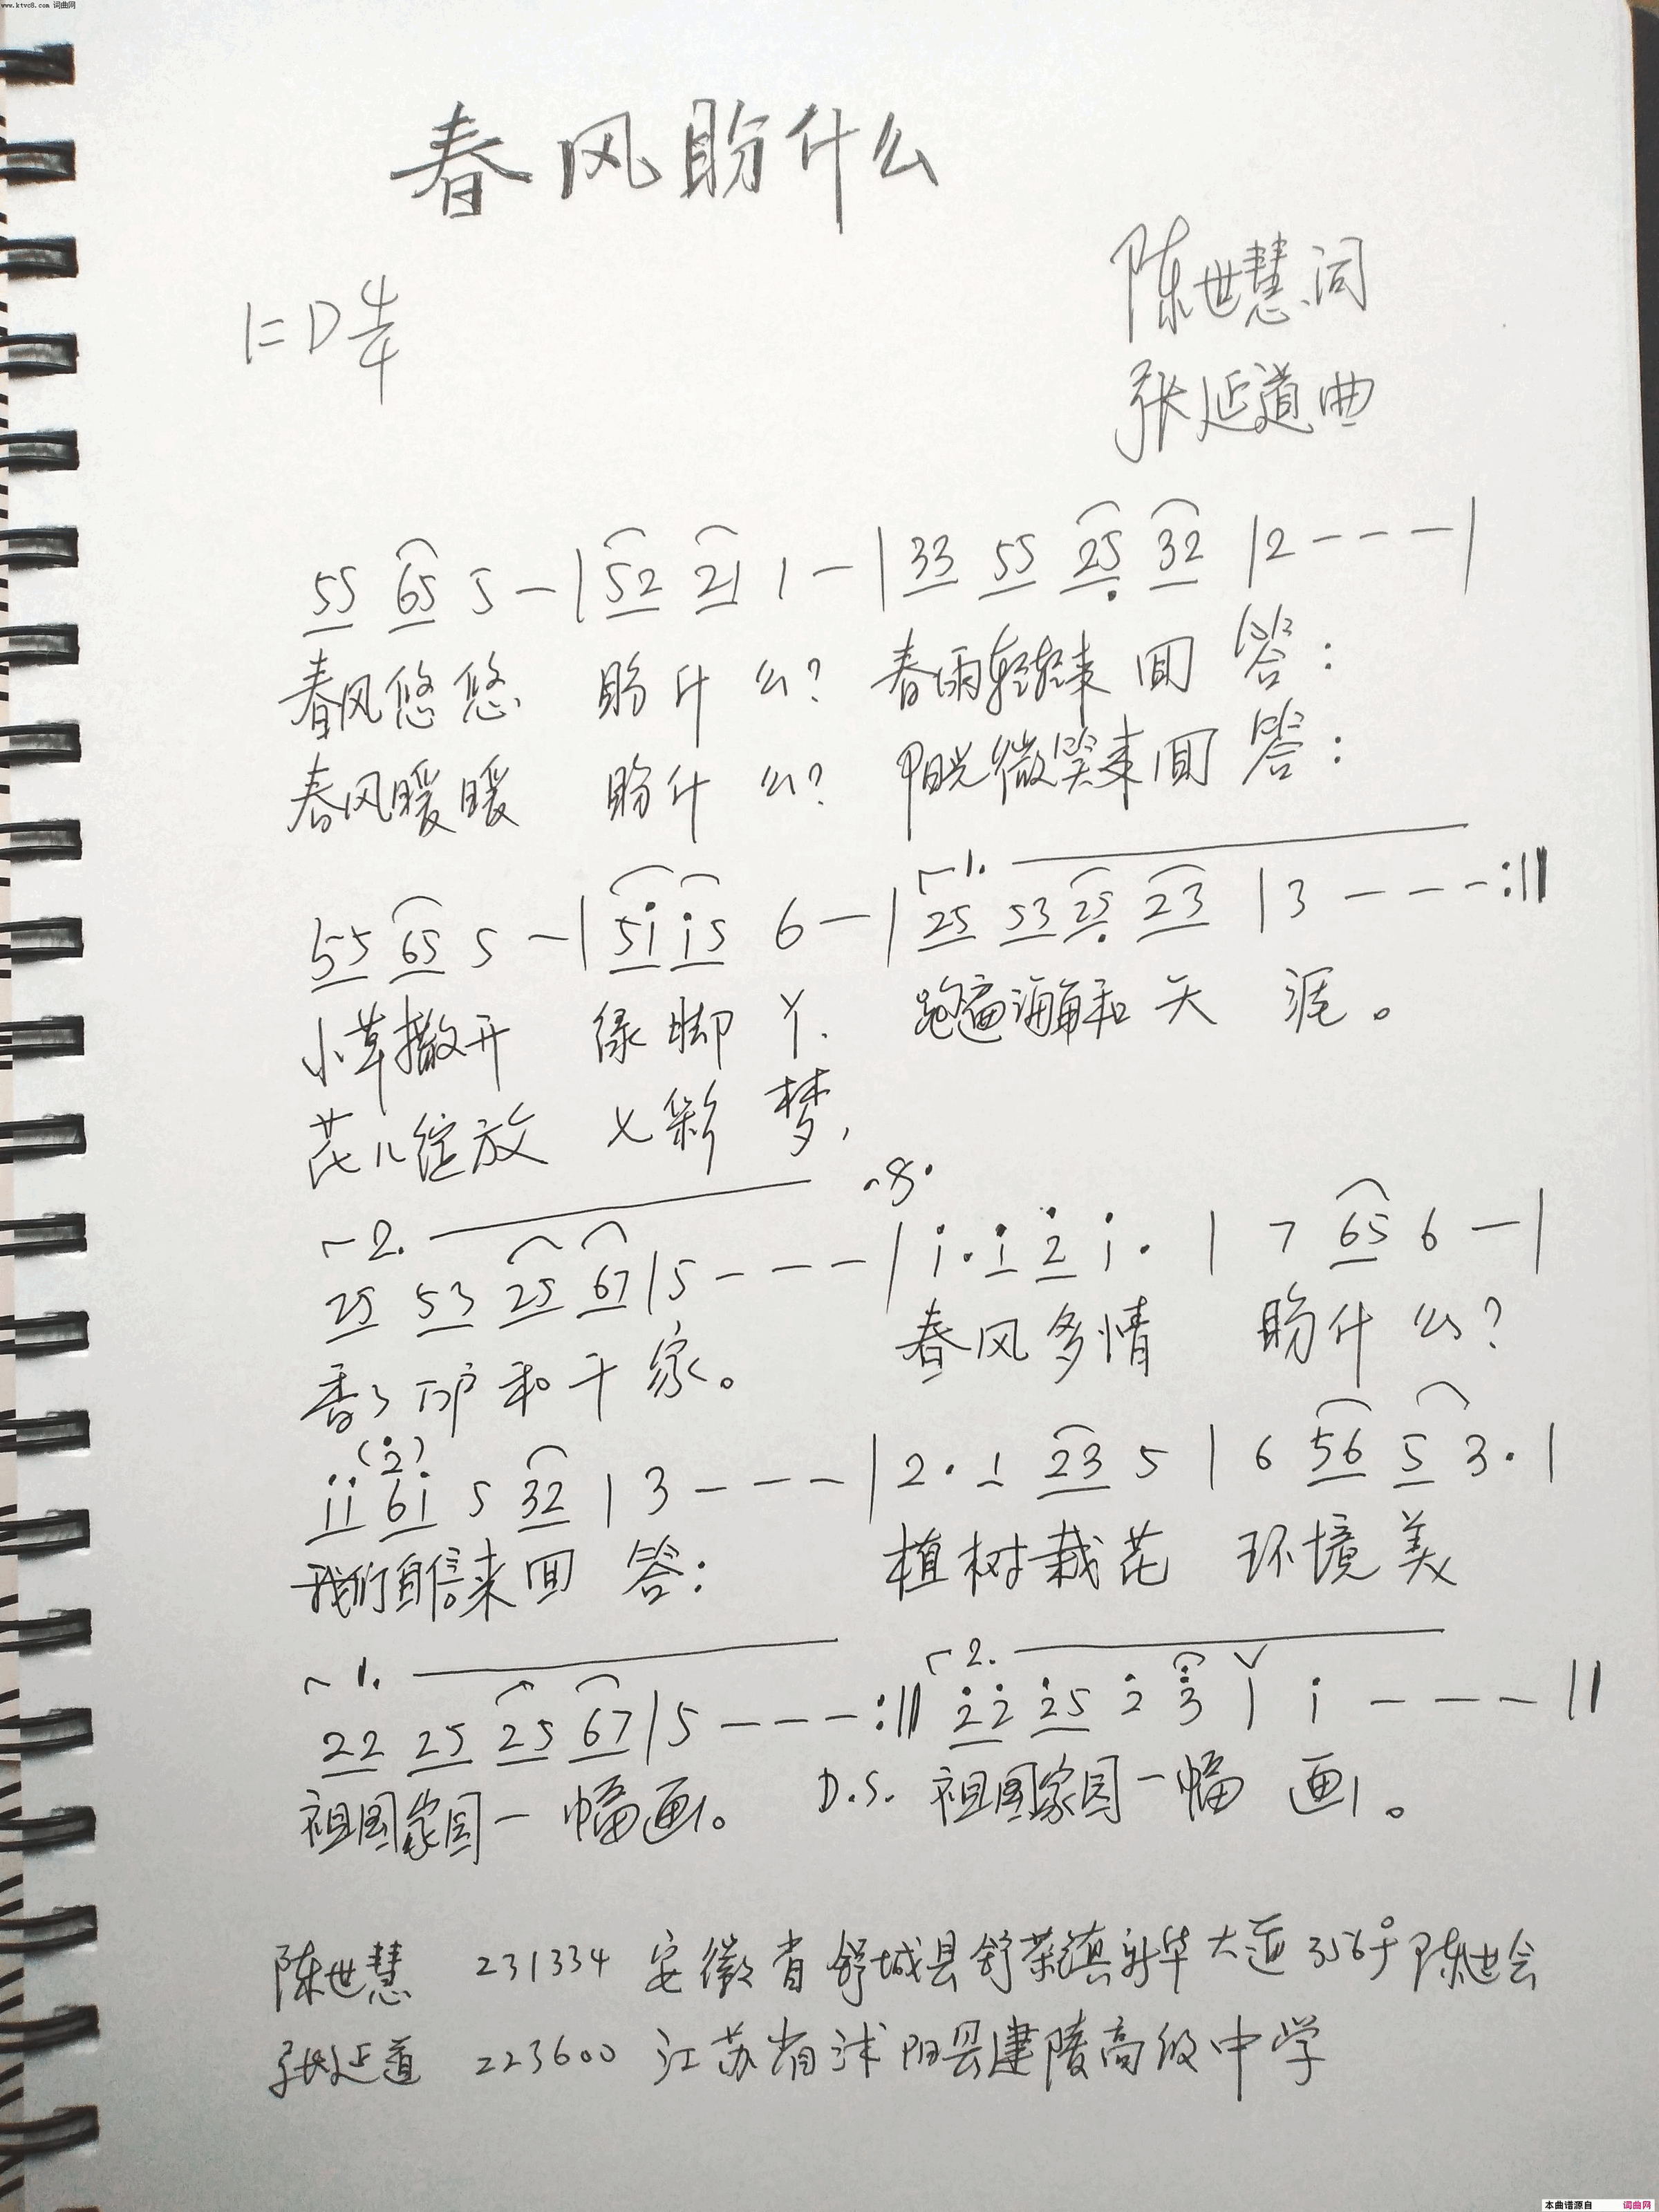 www.ktvc8.com 词曲网
春风盼什么
陈世慧词
1=D 4/4
张延道曲
55 65 5 - | 52 21 1 - | 33 55 25 32 | 2 - - - |
春风悠悠 盼什么? 春雨轻轻来回答:
春风暖暖 盼什么? 阳光微笑来回答:
1.
55 65 5 - | 5i i5 6 - | 25 53 25 23 | 3 - - - :||
小草撒开 绿脚丫, 跑遍海角和天涯。
花儿绽放 七彩梦,
2. 𝄋
25 53 25 67 | 5 - - - | i· i 2 i· | 7 65 6 - |
香了万户和千家。 春风多情 盼什么?
(2)
ii 6i 5 32 | 3 - - - | 2· 1 23 5 | 6 56 5 3· |
我们自信来回答: 植树栽花 环境美
1. 2.
22 25 25 67 | 5 - - - :|| 22 25 2 3 | i - - - ||
祖国家园一幅画。 D.S. 祖国家园一幅画。
陈世慧 231334 安徽省舒城县舒茶镇新华大道356号 陈世会
张延道 223600 江苏省沭阳县建陵高级中学
本曲谱源自 词曲网